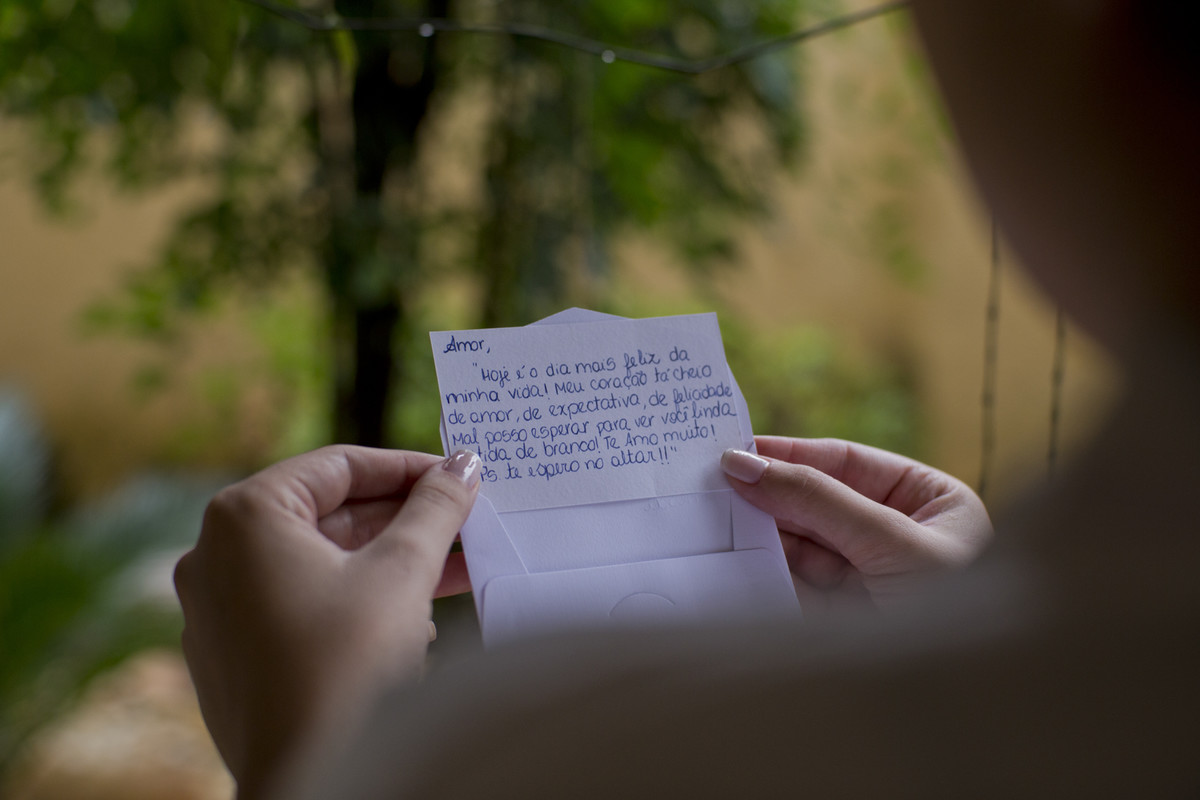 Amor,
"Hoje é o dia mais feliz da
minha vida! Meu coração tá cheio
de amor, de expectativa, de felicidade
Mal posso esperar para ver você linda
tida de branco! Te Amo muito!
Ps. te espero no altar!!"